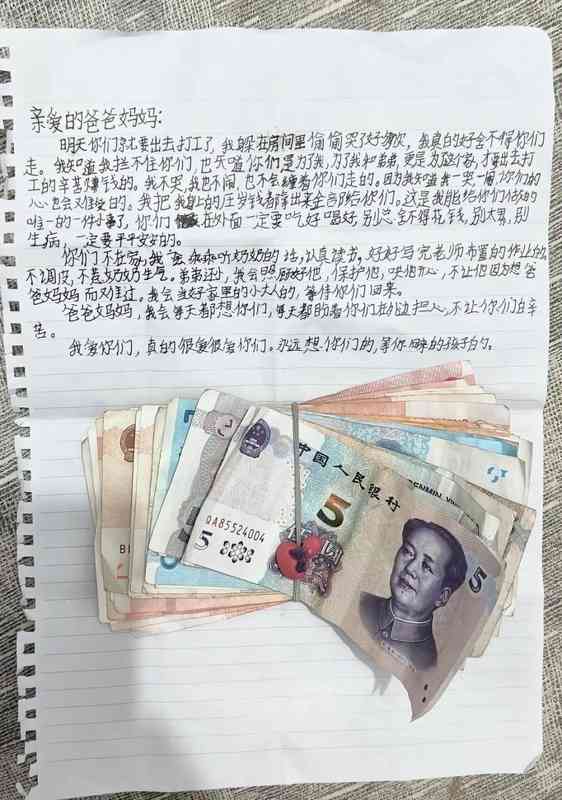 亲爱的爸爸妈妈:
明天你们就要出去打工了,我躲在房间里偷偷哭了好多次,我真的好舍不得你们
走。我知道我拦不住你们,也知道你们是为了我,为了我和弟弟,更是为这个家,才要出去打
工的辛苦赚钱的。我不哭,我也不闹,也不会缠着你们走的。因为我知道我一哭一闹,你们的
心也会难受的。我把我自己的压岁钱都拿出来全部给你们。这是我能给你们做的
唯一的一件小事了,你们在外面一定要吃好喝好,别总舍不得花钱,别太累,别
生病,一定要平平安安的。
你们不在家,我会乖乖听奶奶的话,认真读书,好好写完老师布置的作业
不调皮,不惹奶奶生气。弟弟还小,我会照顾好他,保护他,哄他开心,不让他因为想爸
爸妈妈而难过。我会当好家里的小大人的,等待你们回来。
爸爸妈妈,我会每天都想你们,每天都盼着你们
不让你们白辛
苦。
我爱你们,真的很爱很爱你们。永远想你们的,等你回来的孩子
中国人民银行
5
QA85524004
5
5